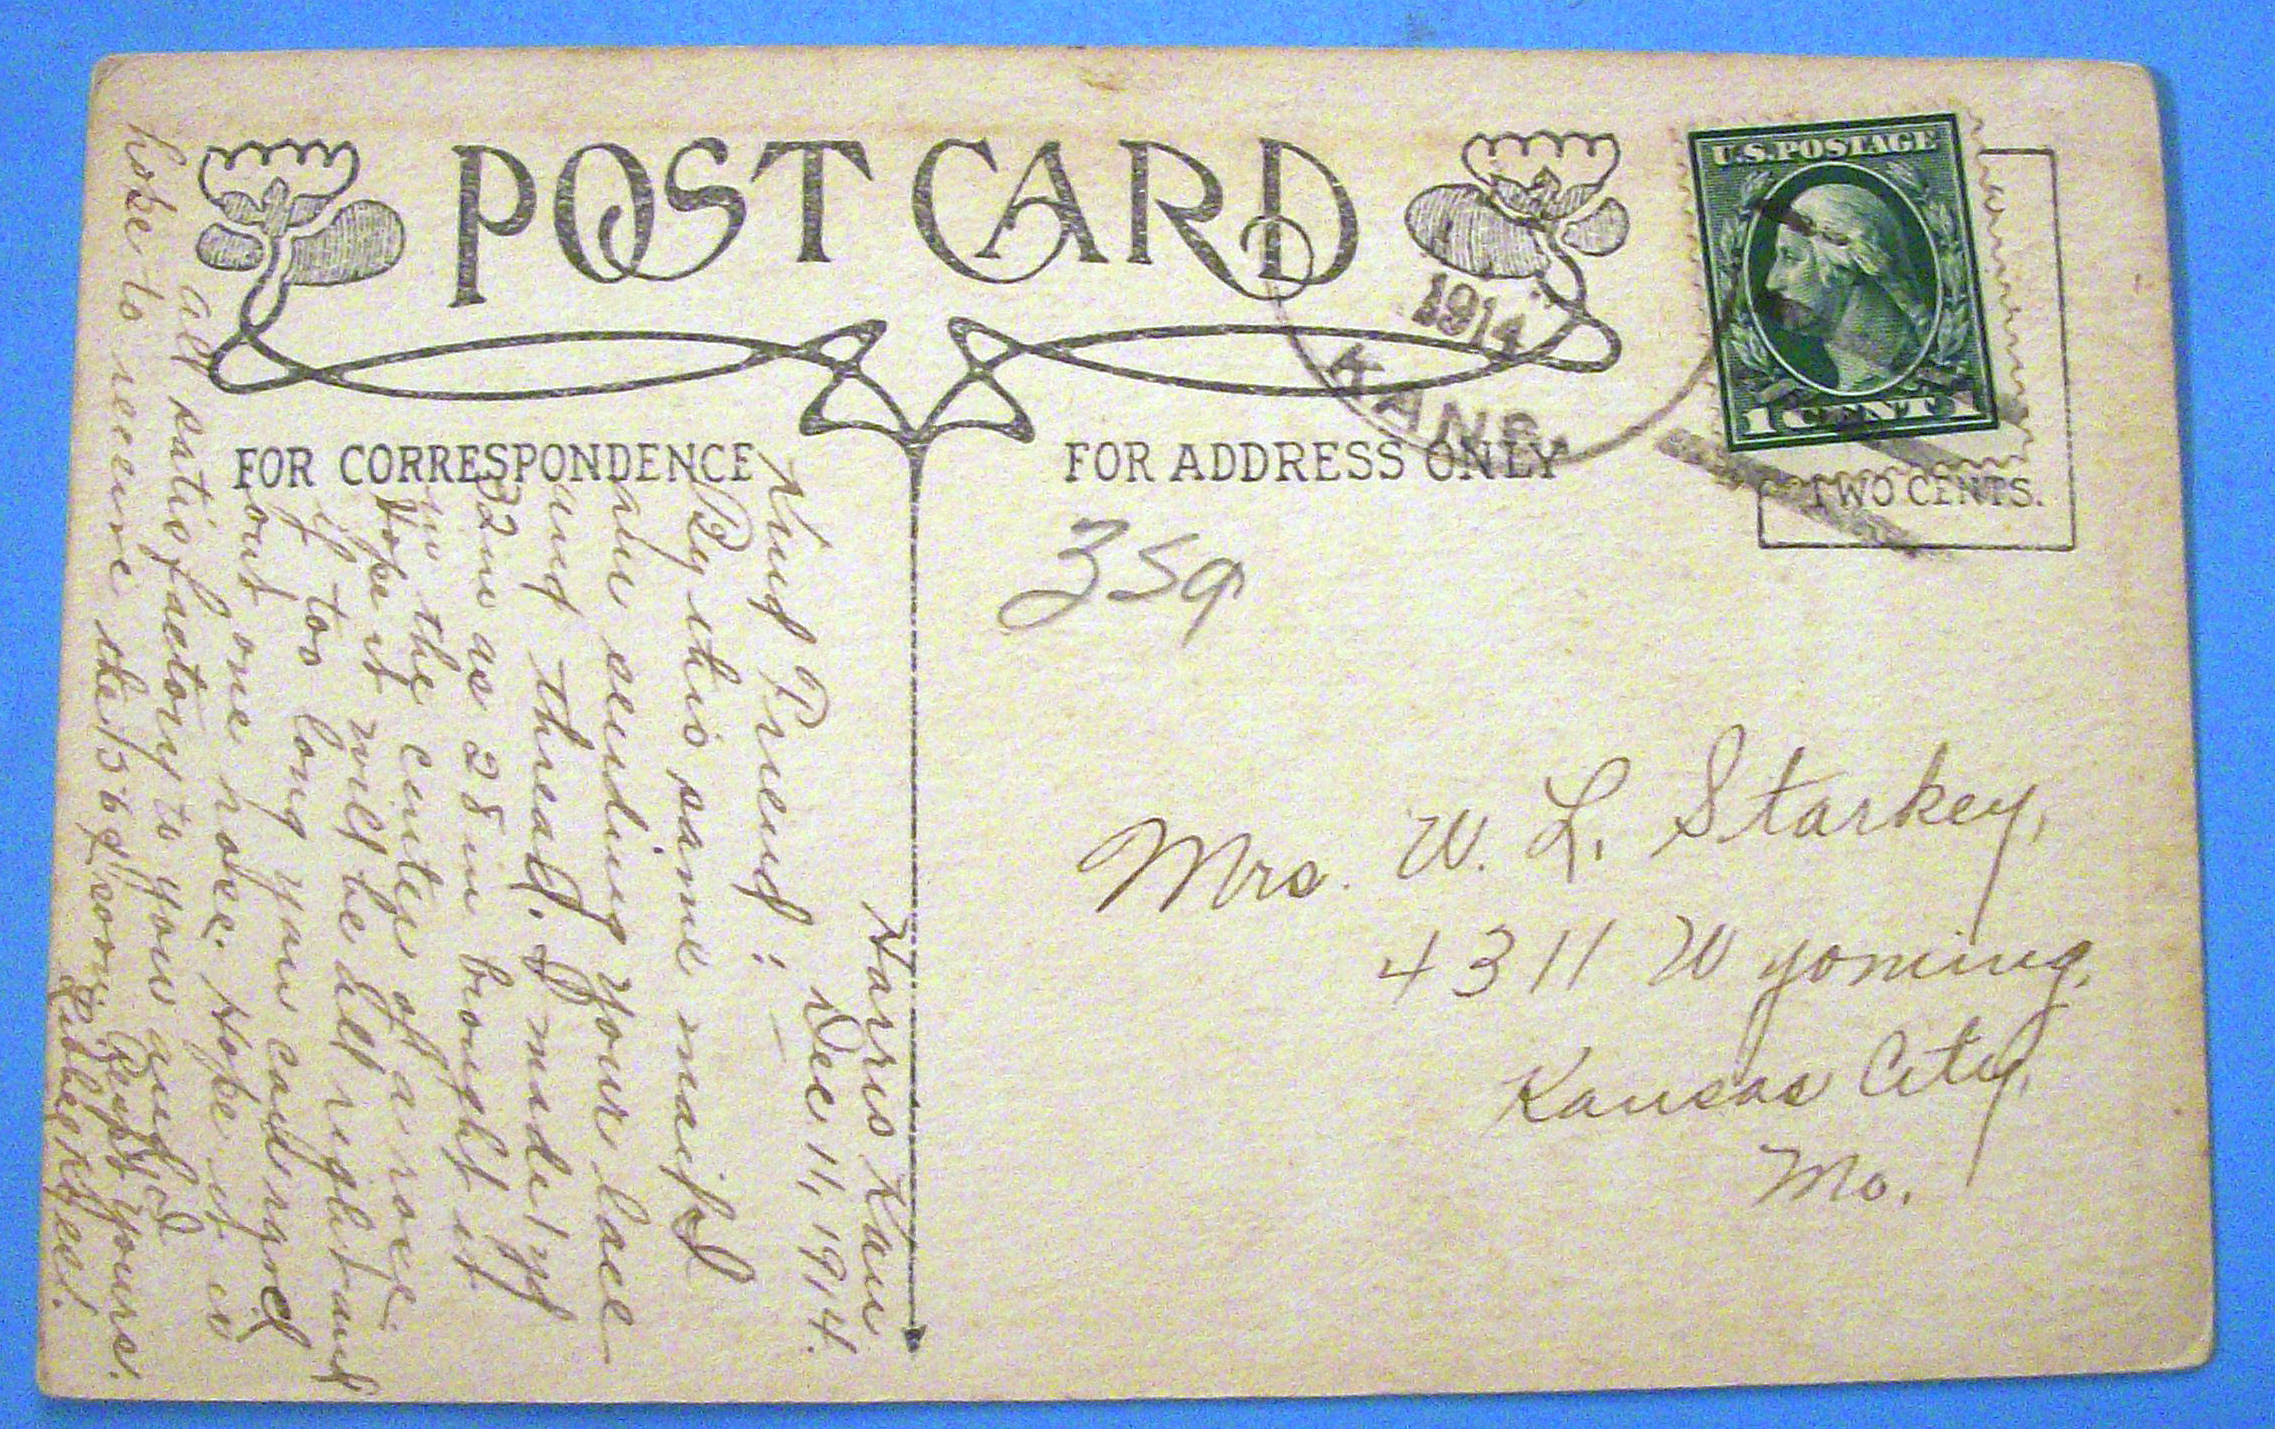 POST CARD
U.S. POSTAGE
1 CENT 1
1914
KANS.
TWO CENTS.
FOR CORRESPONDENCE
FOR ADDRESS ONLY
359
Mrs. W. L. Starkey,
4311 Wyoming,
Kansas City,
Mo.
Harris Kan
Dec 11, 1914.
Kind Friend:—
By this same mail I
am sending your lace
and thread. I made 1 yd
32 in as 28 in brought it
in the center of a rose.
Hope it will be all right and
if too long you can rip
out one rose. Hope it is
all satisfactory to you and I
hope to receive the
yours.